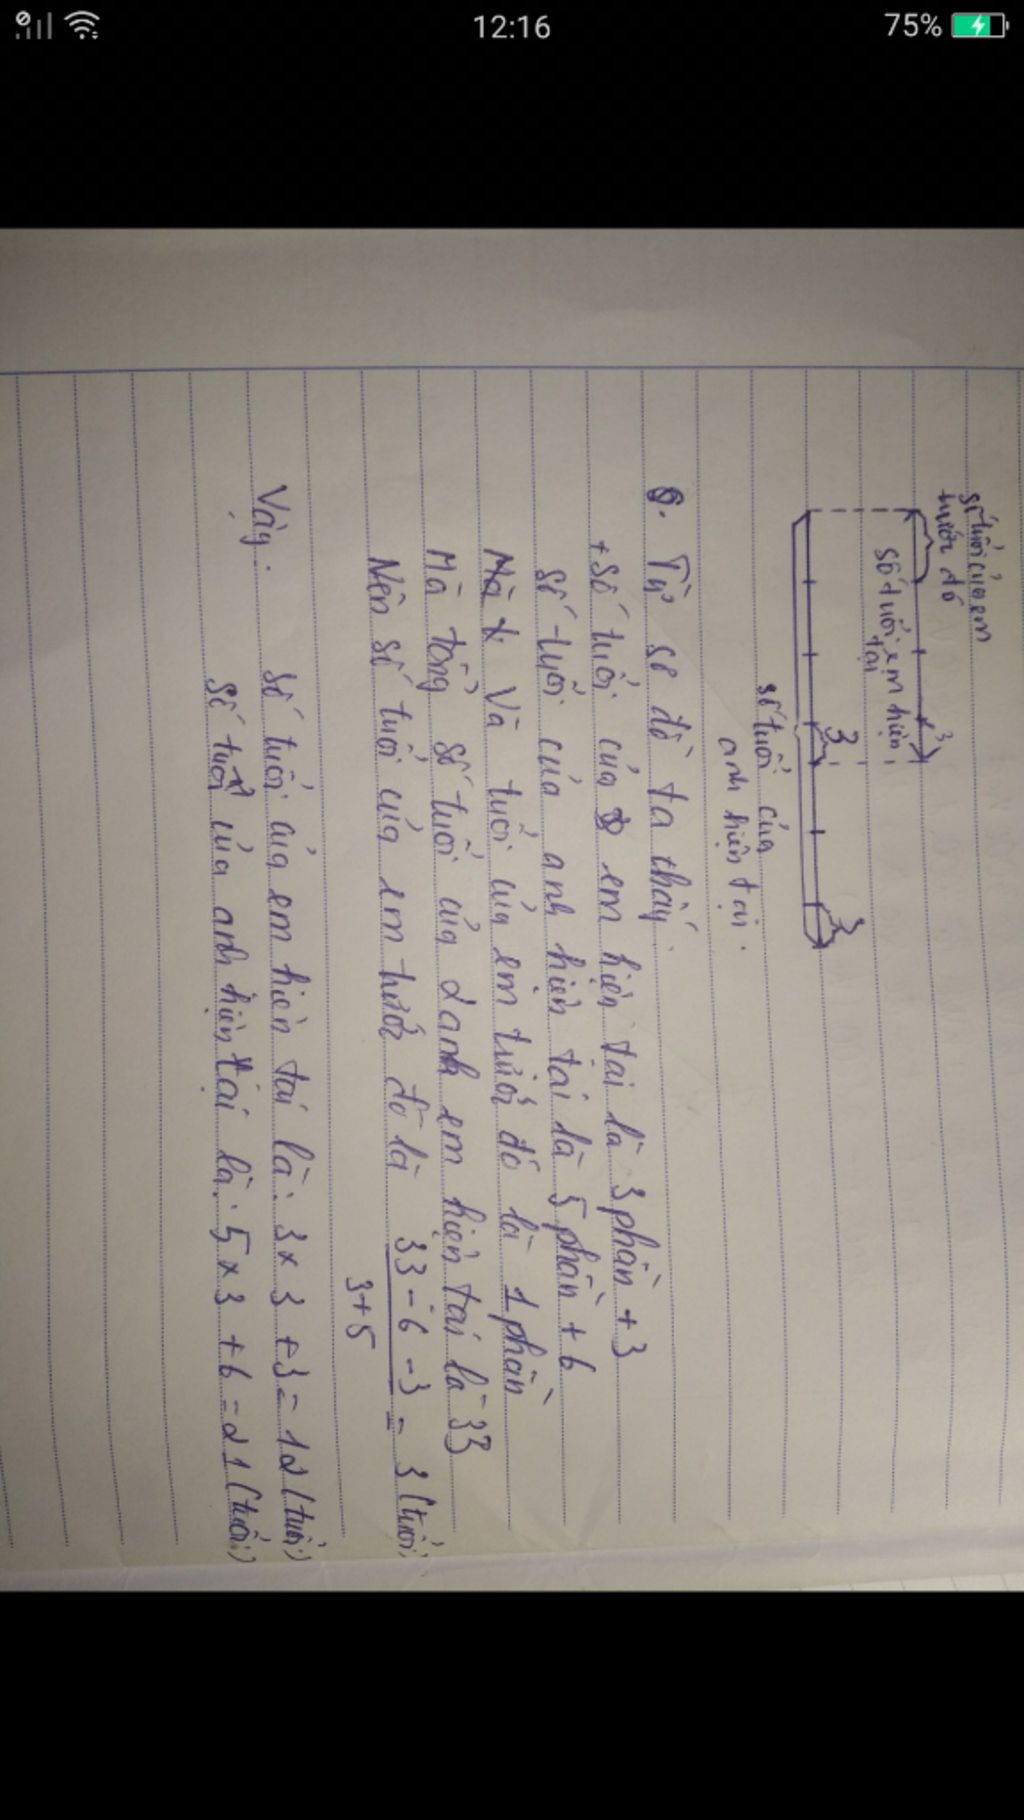 12:16
75%
số tuổi của em
trước đó
3
số tuổi em hiện
tại
3
3
số tuổi của
anh hiện tại.
Từ sơ đồ ta thấy.
+ Số tuổi của em hiện tại là 3 phần + 3
Số tuổi của anh hiện tại là 5 phần + 6
Mà Và tuổi của em trước đó là 1 phần
Mà tổng số tuổi của 2 anh em hiện tại là 33
Nên số tuổi của em trước đó là 33 - 6 - 3 = 3 (tuổi)
3+5
Vậy. Số tuổi của em hiện tại là: 3 x 3 + 3 = 12 (tuổi)
Số tuổi của anh hiện tại là: 5 x 3 + 6 = 21 (tuổi)